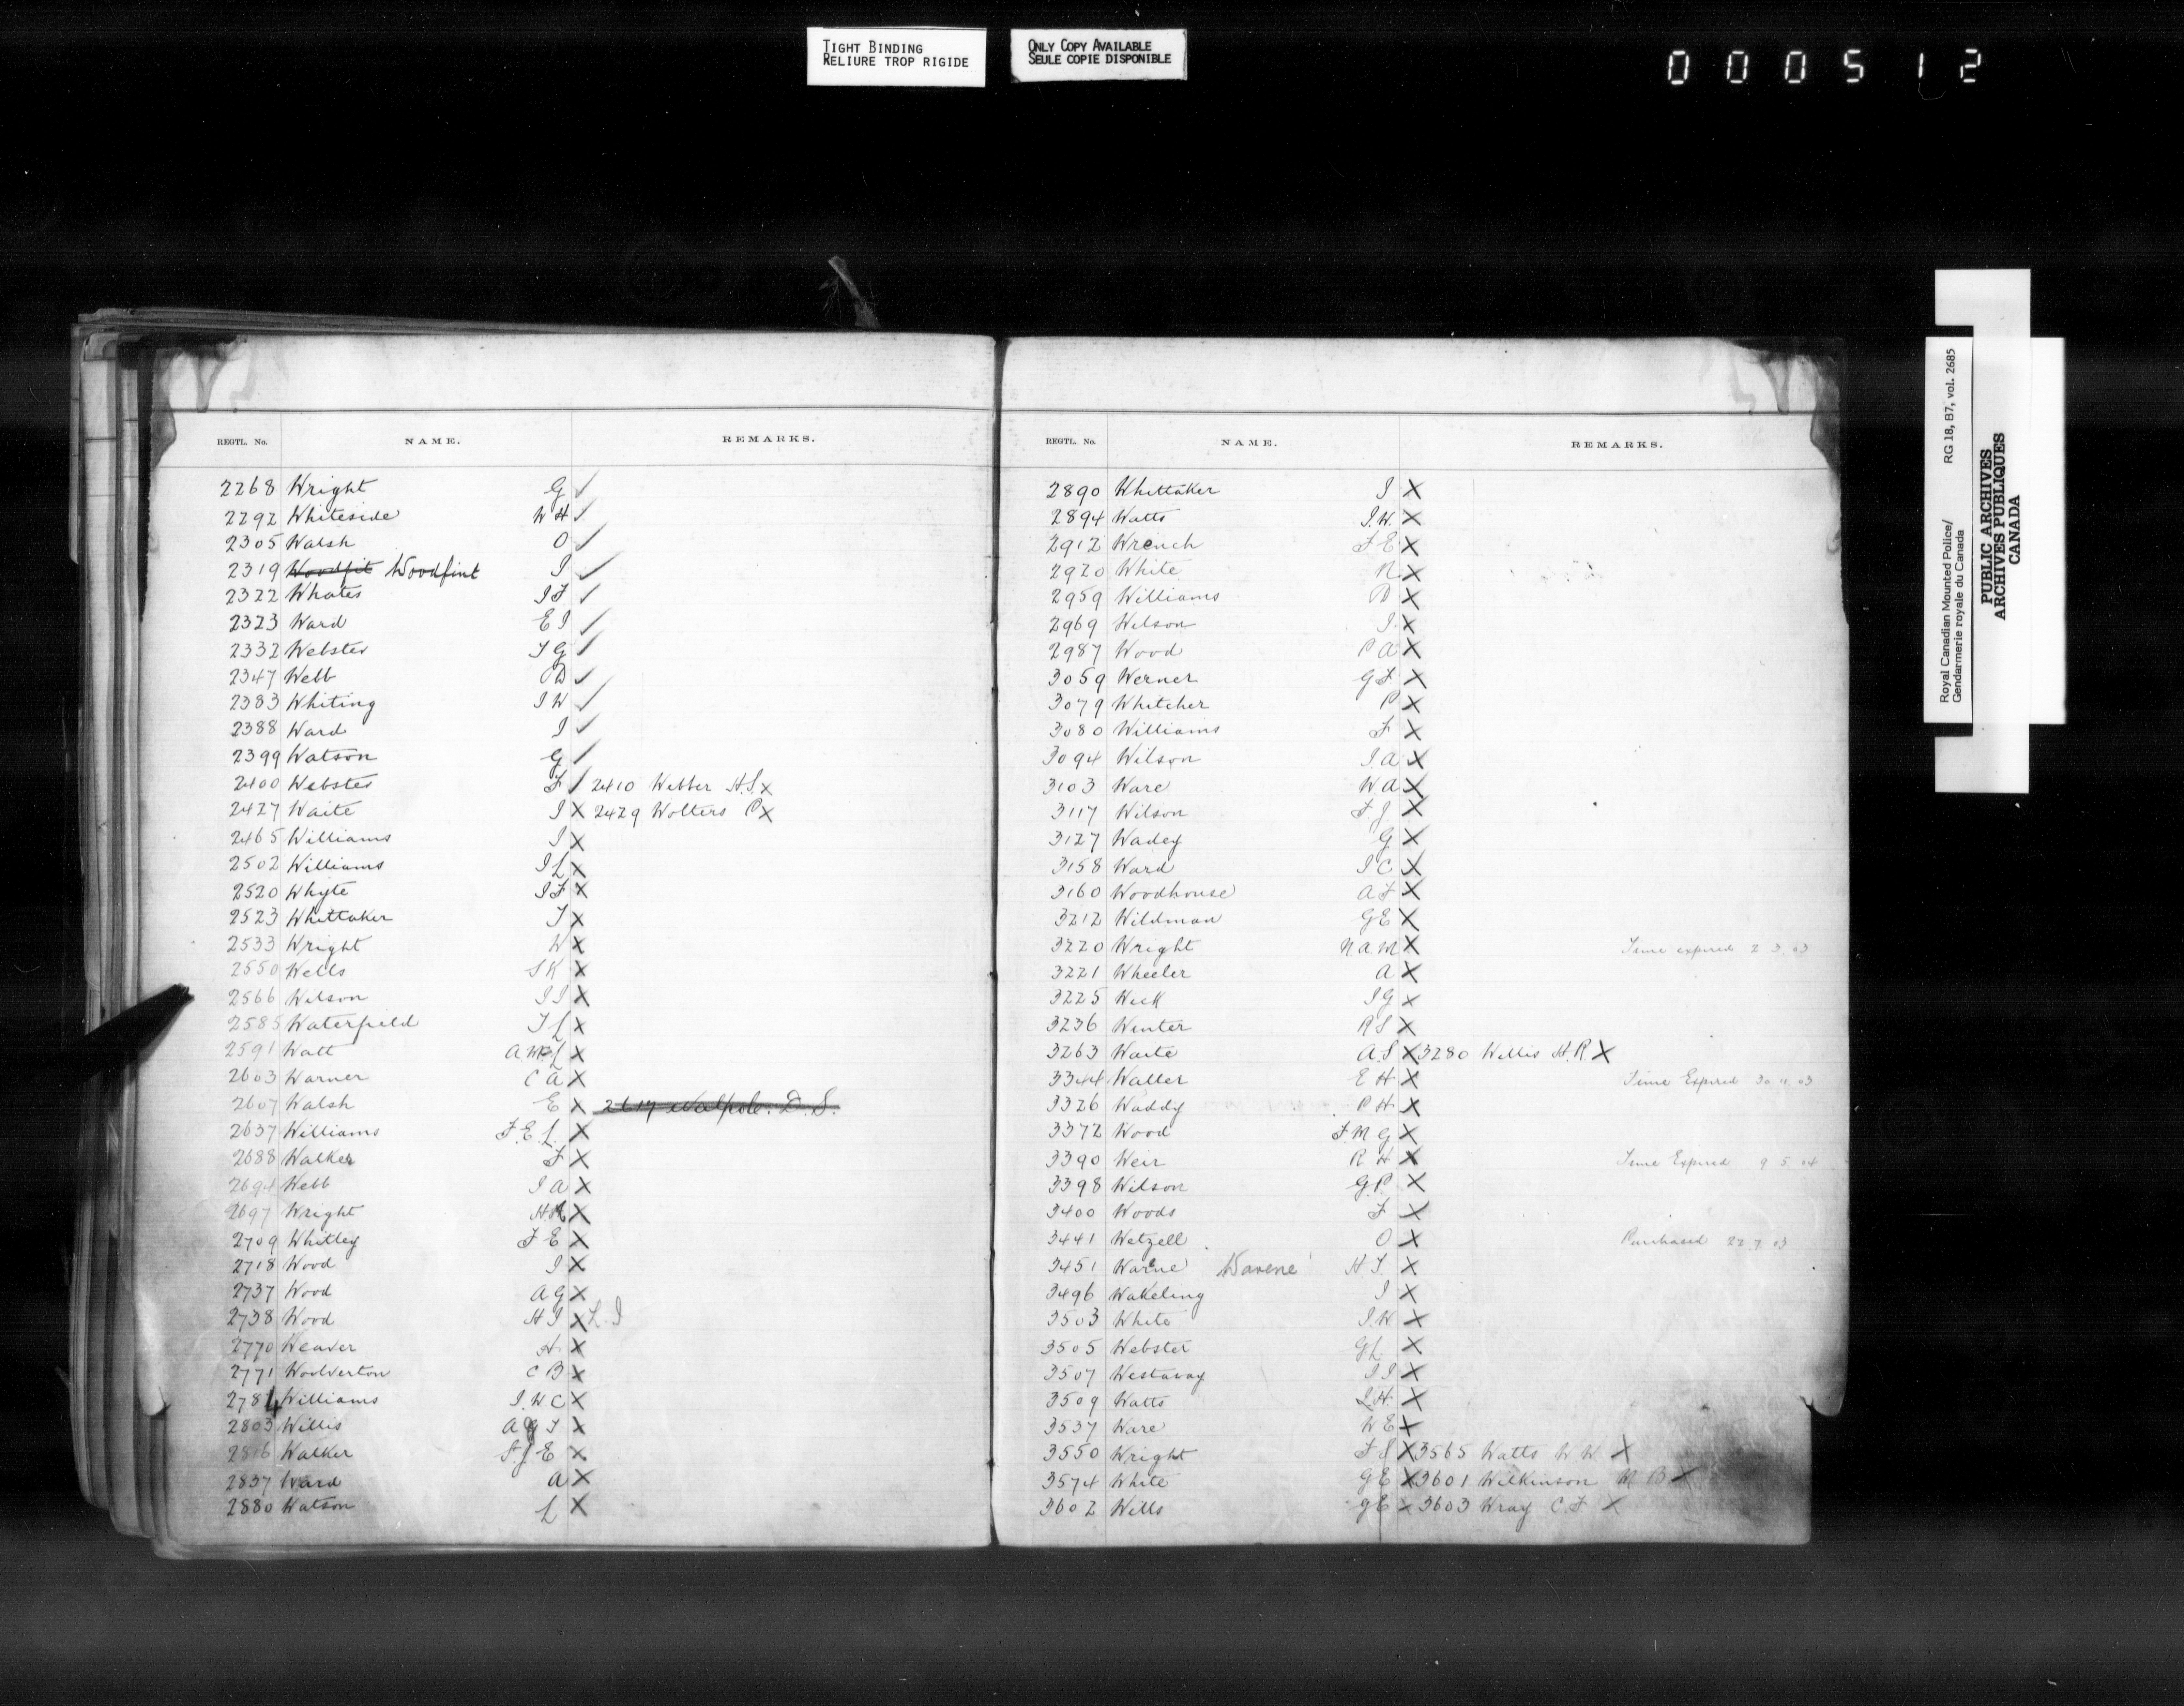 TIGHT BINDING
RELIURE TROP RIGIDE
ONLY COPY AVAILABLE
SEULE COPIE DISPONIBLE
000512
REGTL. No. NAME. REMARKS.
2268 Wright G ✓
2292 Whiteside W H ✓
2305 Walsh O ✓
2319 Woodfit Woodfint J ✓
2322 Whates J F ✓
2323 Ward E J ✓
2332 Webster T G ✓
2347 Webb D ✓
2383 Whiting J W ✓
2388 Ward J ✓
2399 Watson G ✓
2400 Webster F ✓ 2410 Webber H.S. X
2427 Waite J X 2429 Wolters P X
2465 Williams J X
2502 Williams J L X
2520 Whyte J F X
2523 Whittaker T X
2533 Wright W X
2550 Wells S K X
2566 Wilson J J X
2585 Waterfield T L X
2591 Watt A. W. L X
2603 Warner C A X
2607 Walsh E X 2617 Walpole. D. S.
2637 Williams F. E. L. X
2688 Walker F X
2694 Webb J A X
2697 Wright H X
2709 Whitley F E X
2718 Wood J X
2737 Wood A G X
2738 Wood H J X L. J
2770 Weaver H X
2771 Woolverton C B X
2784 Williams J. W C X
2803 Willis A G T X
2816 Walker S. J E X
2837 Ward A X
2880 Watson L X
REGTL. No. NAME. REMARKS.
2890 Whittaker J X
2894 Watts J. W. X
2912 Wrench F E X
2920 White R X
2959 Williams D X
2969 Wilson J. X
2987 Wood P A X
3059 Werner G F X
3079 Whitcher P X
3080 Williams F X
3094 Wilson J. A X
3103 Ware W A X
3117 Wilson F. J X
3127 Wadey G X
3158 Ward J C X
3160 Woodhouse A F X
3212 Wildman G E X
3220 Wright N A M X Time expired 2 3. 03
3221 Wheeler A X
3225 Week J G X
3236 Winter R S X
3263 Waite A. S X 3280 Willis H. R. X
3344 Waller E H X Time Expired 30 11 03
3326 Waddy P H X
3372 Wood F M G X
3390 Weir R H X Time Expired 9 5 04
3398 Wilson G. P. X
3400 Woods F X
3441 Wetzell O X Purchased 22 7 03
3451 Warne Warene H T. X
3496 Wakeling J X
3503 White J. W X
3505 Webster G L X
3507 Westaway J J X
3509 Watts J. H. X
3537 Ware W E X
3550 Wright F S X 3565 Watts W W X
3574 White G E X 3601 Wilkinson M B X
3602 Wills G E X 3603 Wray C. F X
Royal Canadian Mounted Police/ RG 18, B7, vol. 2685
Gendarmerie royale du Canada
PUBLIC ARCHIVES
ARCHIVES PUBLIQUES
CANADA